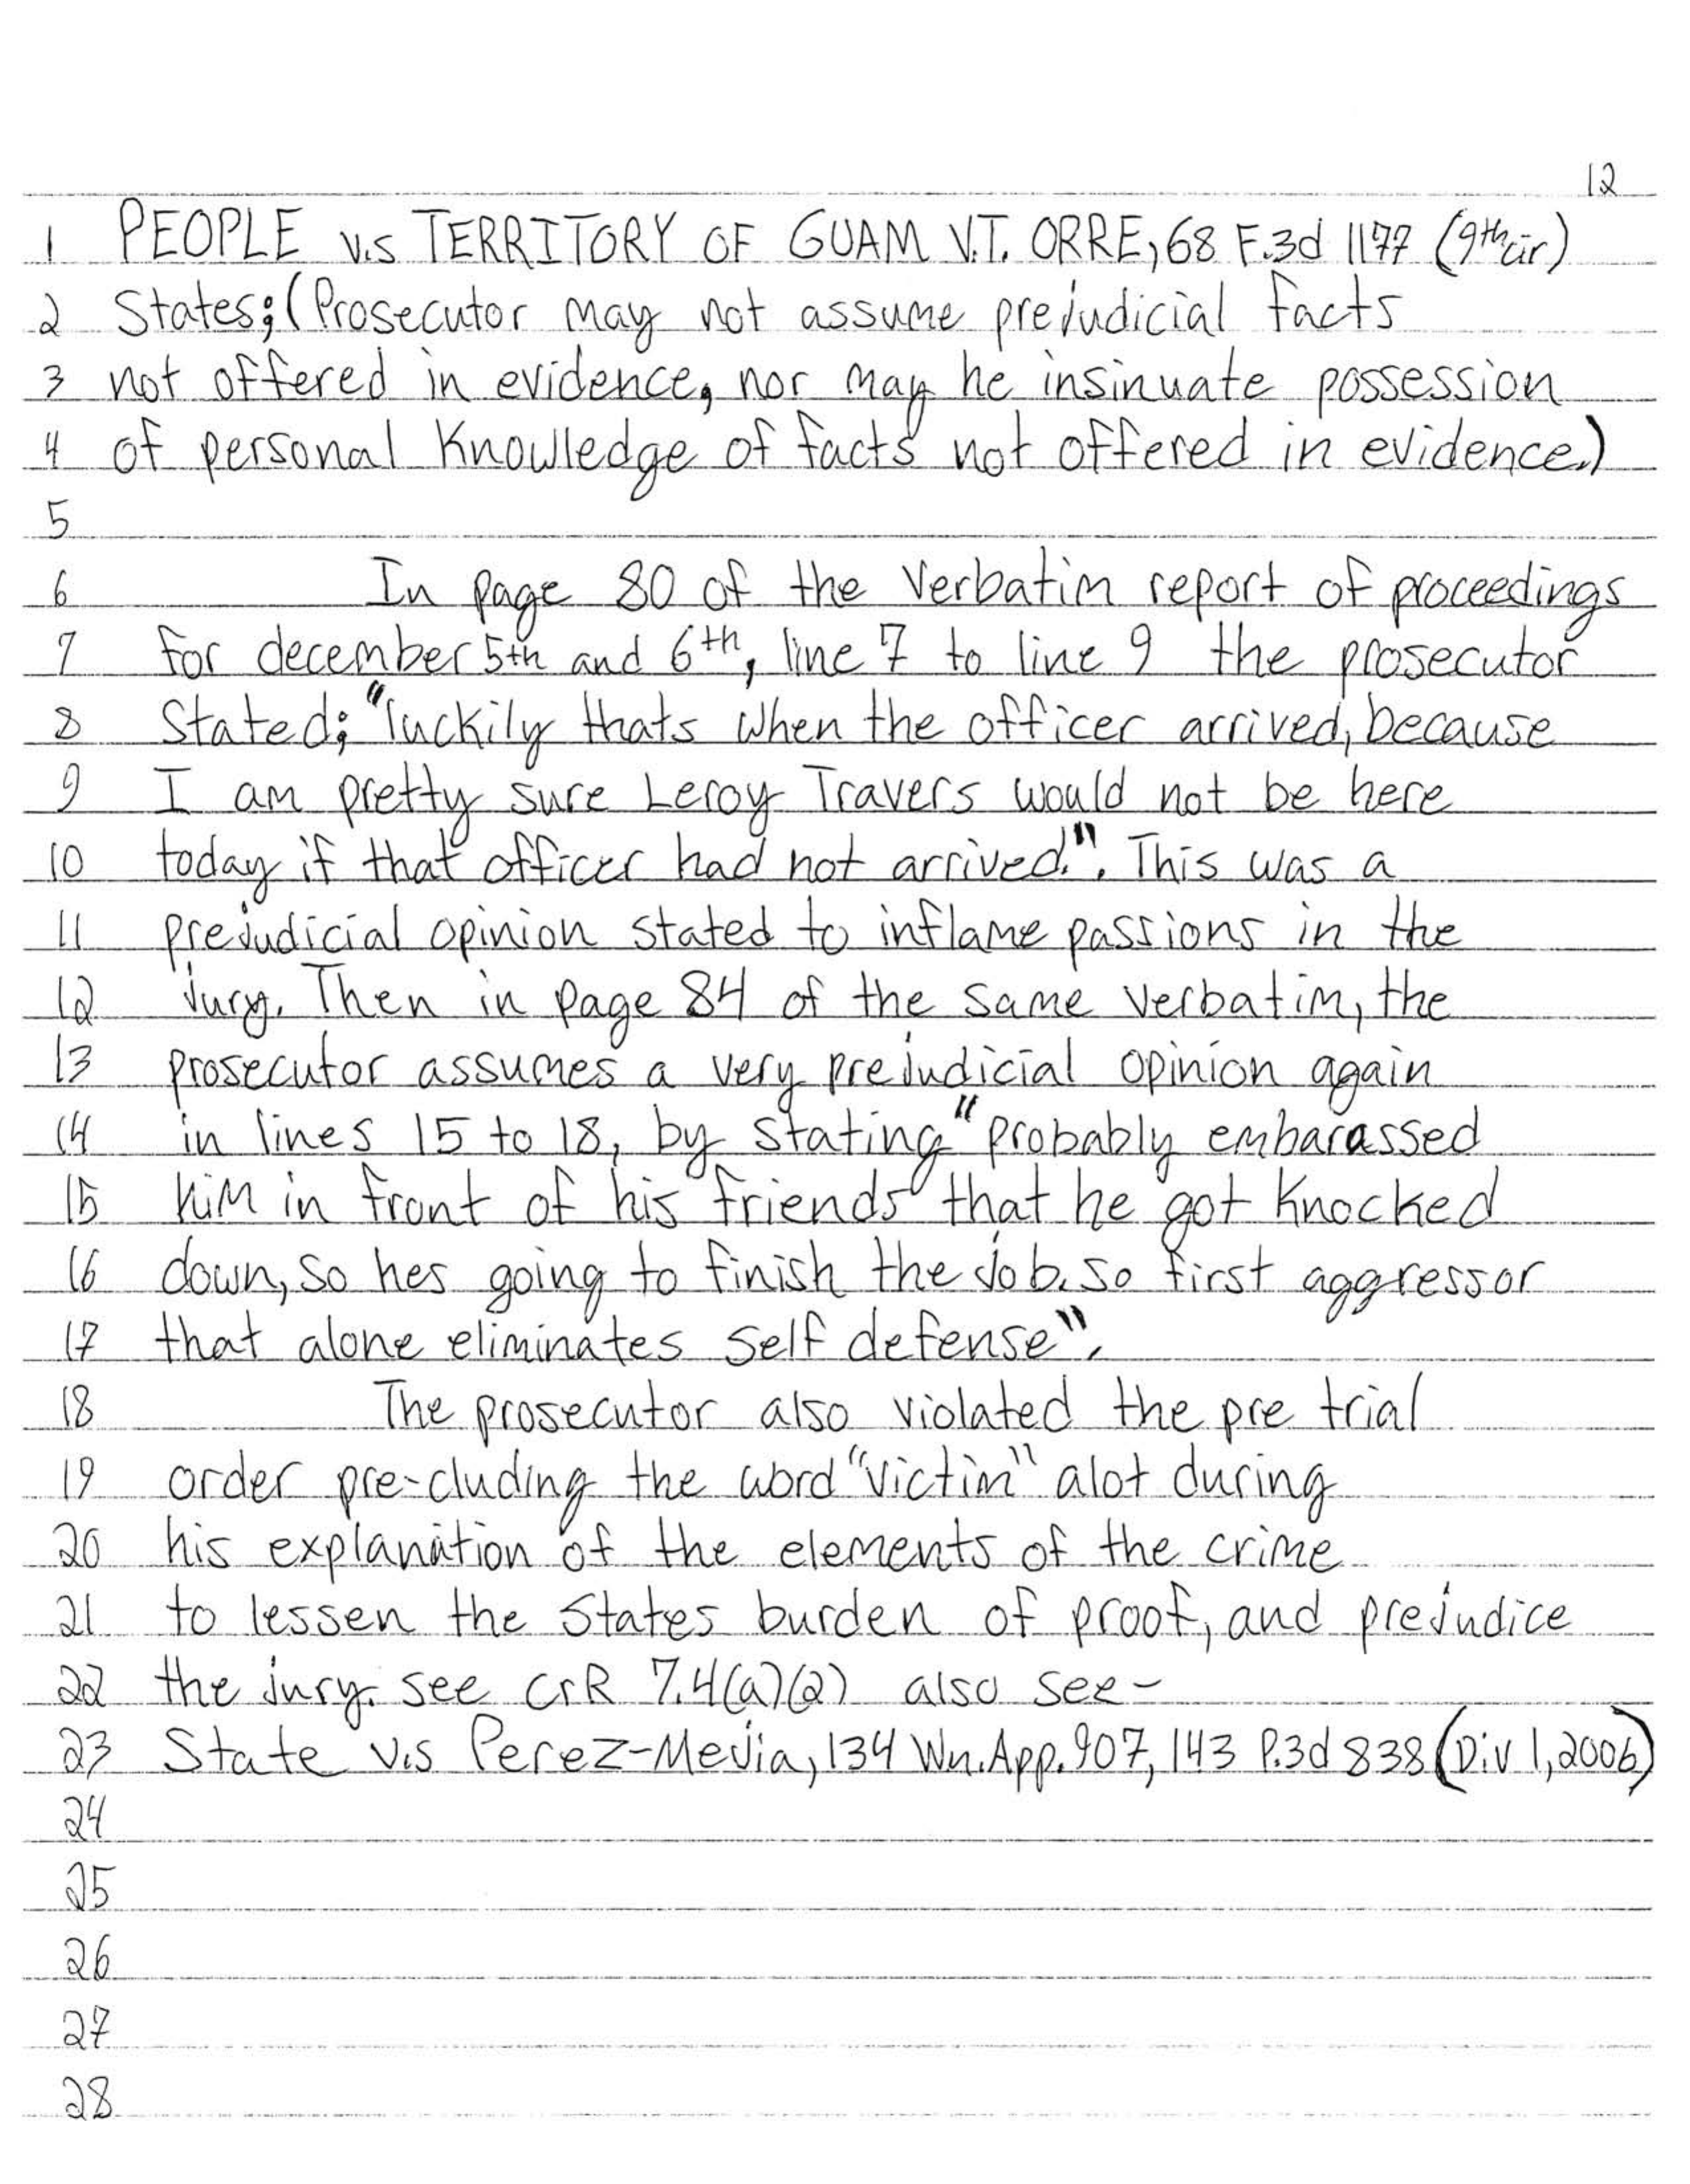 12
1 PEOPLE v.s TERRITORY OF GUAM V.T. ORRE, 68 F.3d 1177 (9th cir)
2 States; (Prosecutor may not assume prejudicial facts
3 not offered in evidence, nor may he insinuate possession
4 of personal Knowledge of facts not offered in evidence.)
5
6 In page 80 of the Verbatim report of proceedings
7 for december 5th and 6th, line 7 to line 9 the prosecutor
8 Stated; "luckily thats when the officer arrived, because
9 I am pretty sure Leroy Travers would not be here
10 today if that officer had not arrived.". This was a
11 prejudicial opinion stated to inflame passions in the
12 jury. Then in page 84 of the same verbatim, the
13 prosecutor assumes a very prejudicial opinion again
14 in lines 15 to 18, by stating "probably embarassed
15 him in front of his friends that he got knocked
16 down, so hes going to finish the job. so first aggressor
17 that alone eliminates self defense".
18 The prosecutor also violated the pre trial
19 order pre-cluding the word "victim" alot during
20 his explanation of the elements of the crime
21 to lessen the States burden of proof, and prejudice
22 the jury. see CrR 7.4(a)(2) also see-
23 State v.s Perez-Mejia, 134 Wn.App. 907, 143 P.3d 838 (Div 1, 2006)
24
25
26
27
28